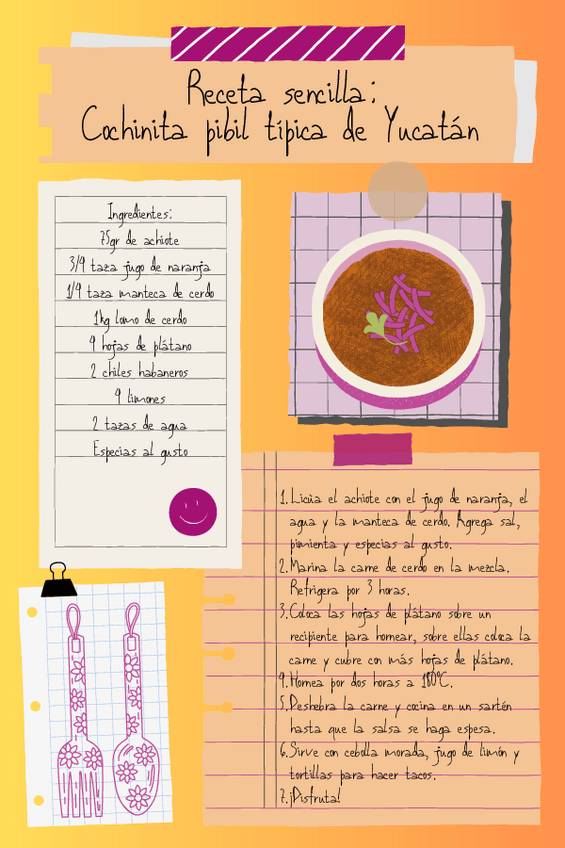 Receta sencilla:
Cochinita pibil típica de Yucatán
Ingredientes:
75gr de achiote
3/4 taza jugo de naranja
1/4 taza manteca de cerdo
1kg lomo de cerdo
4 hojas de plátano
2 chiles habaneros
4 limones
2 tazas de agua
Especias al gusto
1. Licúa el achiote con el jugo de naranja, el
agua y la manteca de cerdo. Agrega sal,
pimienta y especias al gusto.
2. Marina la carne de cerdo en la mezcla.
Refrigera por 3 horas.
3. Coloca las hojas de plátano sobre un
recipiente para hornear, sobre ellas coloca la
carne y cubre con más hojas de plátano.
4. Hornea por dos horas a 180°C.
5. Deshebra la carne y cocina en un sartén
hasta que la salsa se haga espesa.
6. Sirve con cebolla morada, jugo de limón y
tortillas para hacer tacos.
7. ¡Disfruta!